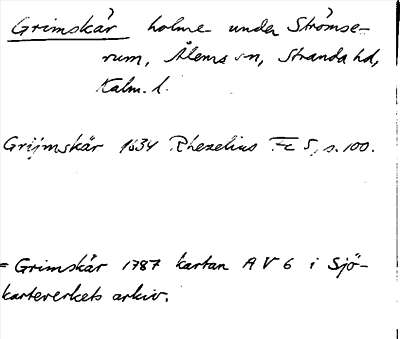 Grimskär holme under Strömse-
rum, Ålems sn, Stranda hd,
Kalm. l.
Grijmskär 1634 Rhezelius Fc 5, s. 100.
= Grimskär 1787 kartan A V 6 i Sjö-
karteverkets arkiv.